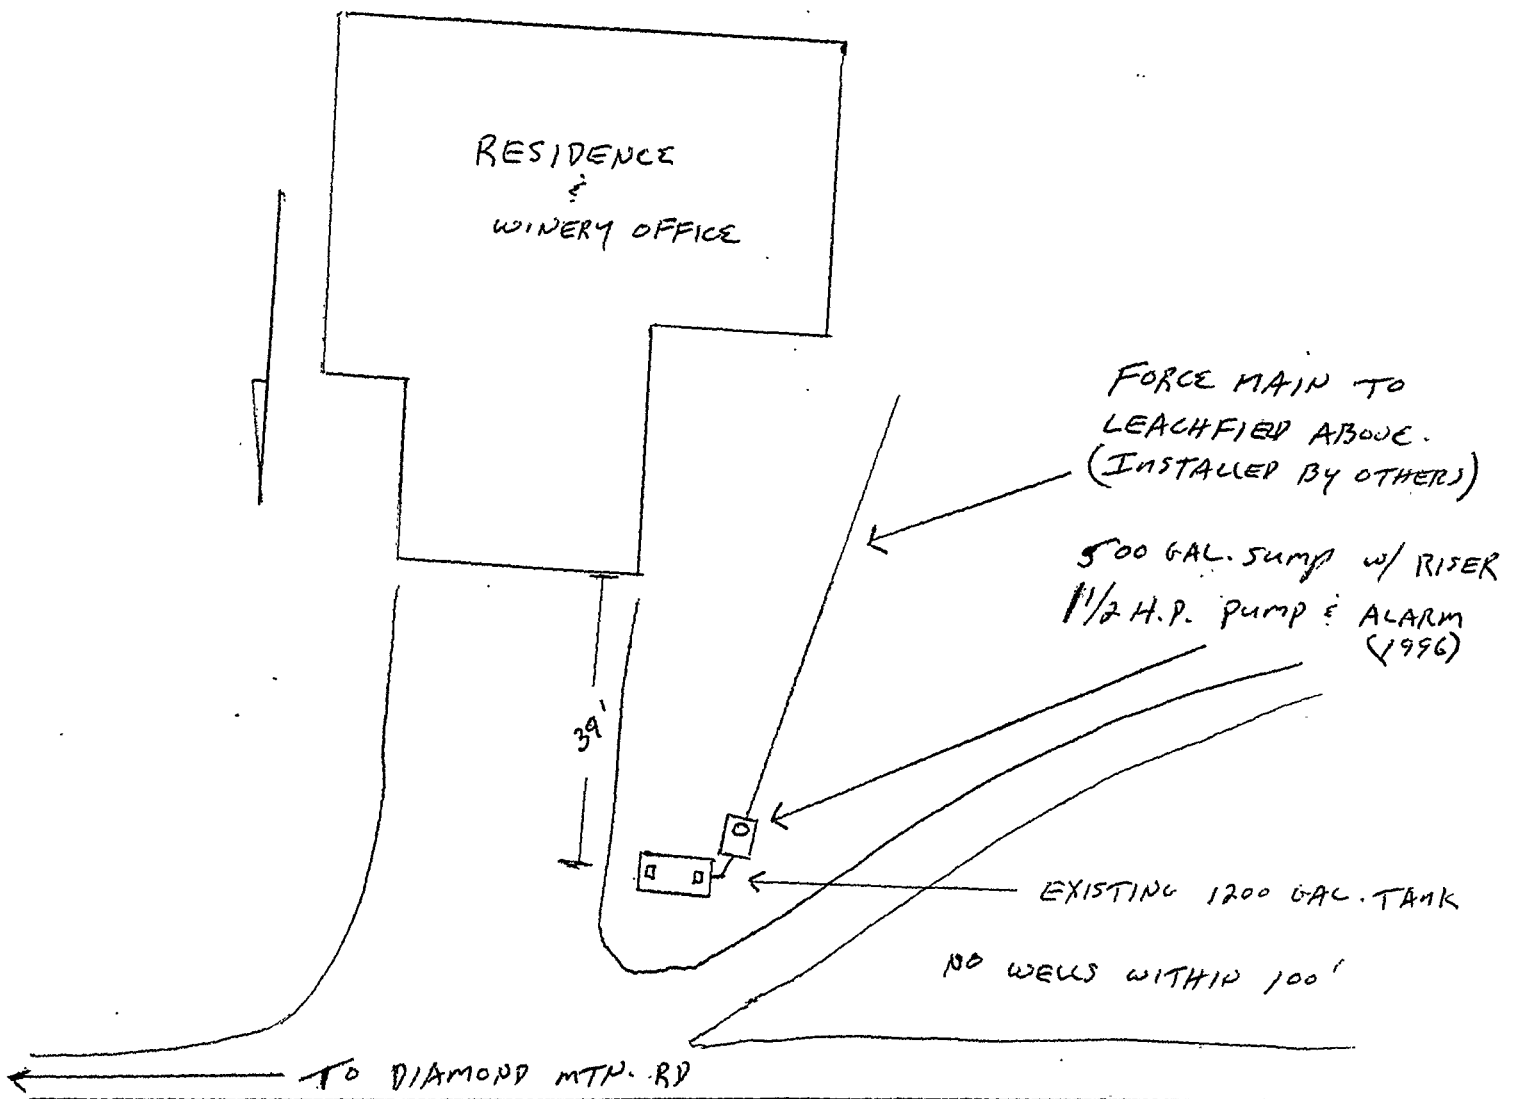 RESIDENCE
&
WINERY OFFICE
FORCE MAIN TO
LEACHFIELD ABOVE.
(INSTALLED BY OTHERS)
500 GAL. SUMP W/ RISER
1 1/2 H.P. PUMP & ALARM
(1996)
39'
EXISTING 1200 GAL. TANK
NO WELLS WITHIN 100'
TO DIAMOND MTN. RD